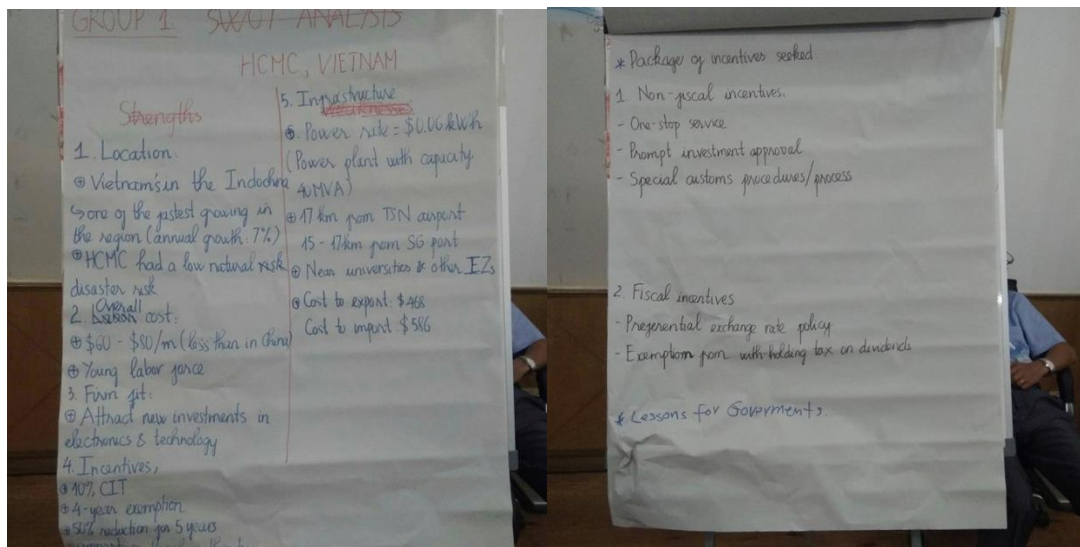 GROUP 1 SWOT ANALYSIS
HCMC, VIETNAM
Strengths
1. Location:
⊕ Vietnam's in the Indochina
↳ one of the fastest growing in
the region (annual growth: 7%)
⊕ HCMC had a low natural risk
disaster risk
2. Overall cost:
⊕ $60 - $80/m (less than in China)
⊕ Young labor force
3. Firm fit:
⊕ Attract new investments in
electronics & technology
4. Incentives,
⊕ 10% CIT
⊕ 4-year exemption
⊕ 50% reduction for 5 years
5. Infrastructure
Weaknesses
⊕ Power rate = $0.06 kWh
(Power plant with capacity
40MVA)
⊕ 17 km from TSN airport
15 - 17km from SG port
⊕ Near universities & other IZs
⊕ Cost to export: $468
Cost to import: $586
* Package of incentives seeked
1 Non-fiscal incentives.
- One-stop service
- Prompt investment approval
- Special customs procedures/process
2. Fiscal incentives
- Preferential exchange rate policy
- Exemptiom from with-holding tax on dividends
* Lessons for Goverments.